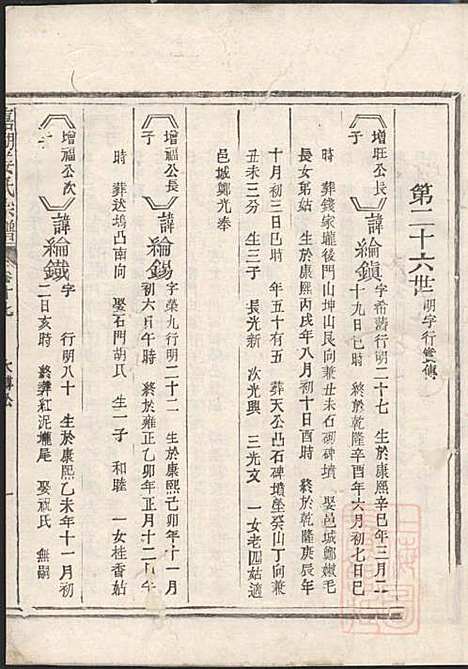 第二十六世 明字行世傳
增旺公長子
諱綸鎖
字希藩行明二十七 生於康熙辛巳年三月二
十九日巳時 終於乾隆辛酉年六月初七日巳
時 葬錢家壠後門山坤山艮向兼丑未石碑磚墳 娶邑城鄭嫩毛
長女弟姑 生於康熙丙戌年八月初十日酉時 終於乾隆庚辰年
十月初三日巳時 年五十有五 葬天公凸石碑墳塋癸山丁向兼
丑未三分 生三子 長光新 次光興 三光文 一女老四姑適
邑城鄭光奉
增福公長子
諱綸錫
字榮九行明二十二 生於康熙己卯年十一月
初六日午時 終於雍正乙卯年正月十二日午
時 葬达塢凸南向 娶石門胡氏 生一子 和睦 一女桂香姑
增福公次子
諱綸鐵
字 行明八十 生於康熙乙未年十一月初
二日亥時 終葬紅泥壠尾 娶祝氏 無嗣
氏宗譜
一